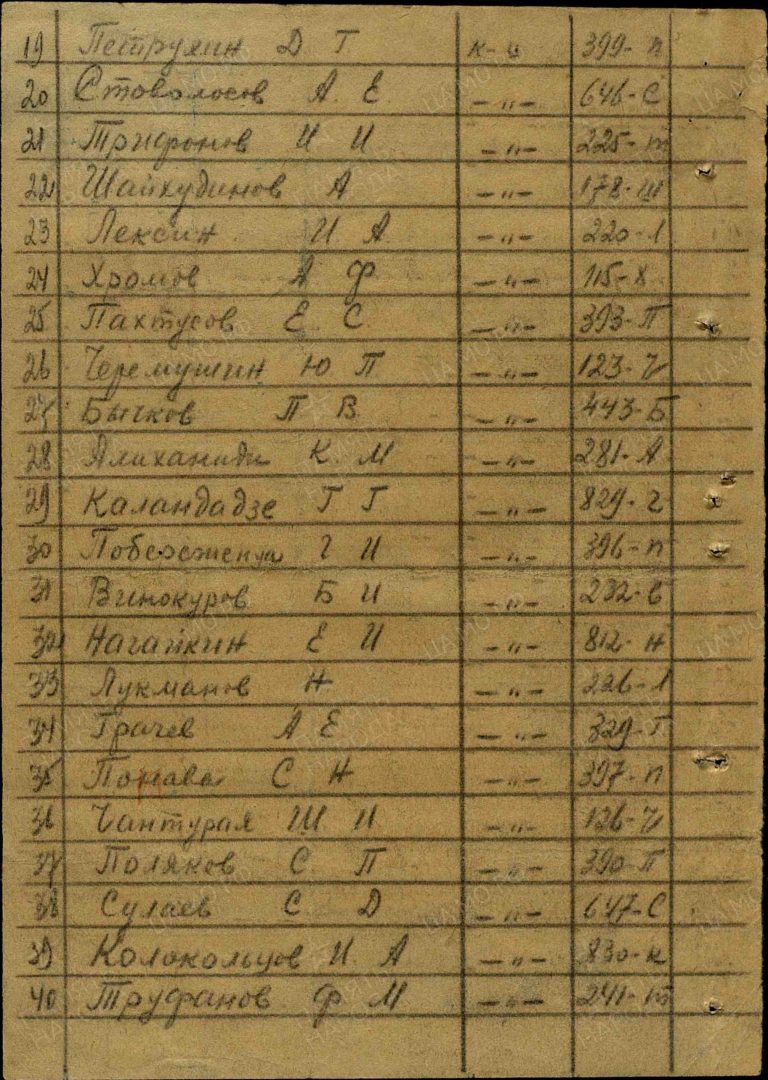 19 Петрухин Д Т к-ц 399-п
20 Стоволосов А. Е. —„— 646-С
21 Трифонов И И —„— 225-т
22 Шайхудинов А —„— 178-ш
23 Лексин И А —„— 220-л
24 Хромов А Ф —„— 115-х
25 Пахтусов Е С —„— 393-П
26 Черемушин Ю П —„— 123-Ч
27 Бычков П В —„— 443-Б
28 К. М —„— 281-А
29 Каландадзе Г Г —„— 829-г
30 Г И —„— 396-п
31 Винокуров Б И —„— 232-в
32 Нагайкин Е И —„— 812-н
33 Лукманов Н —„— 226-л
34 Грачев А Е —„— 829-Г
35 С Н —„— 397-п
36 Чантурая Ш И —„— 126-Ч
37 Поляков С. П —„— 390-П
38 Сулаев С Д —„— 647-С
39 Колокольцов И А —„— 830-к
40 Труфанов Ф М —„— 241-т